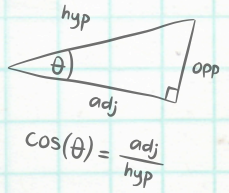 hyp
θ
opp
adj
cos(θ) = adj/hyp